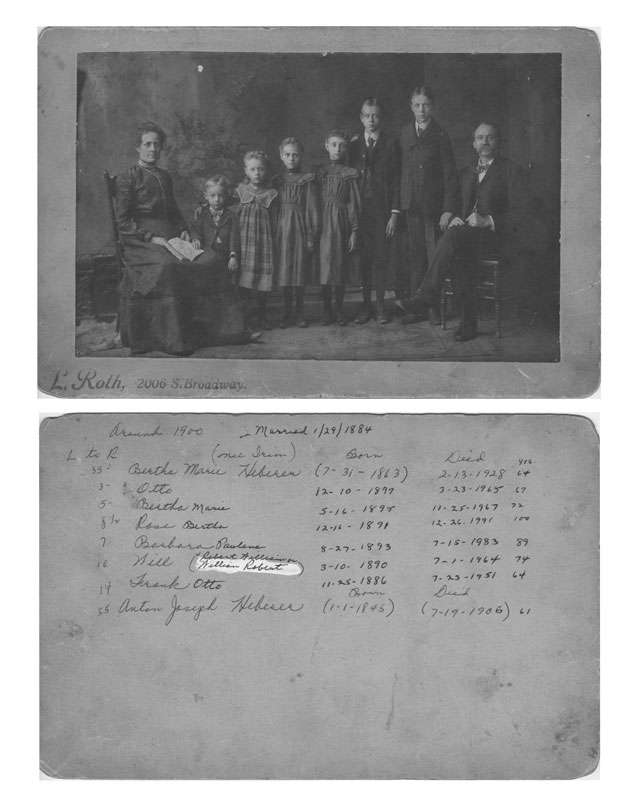 L. Roth, 2006 S. Broadway.
Around 1900 – Married 1/29/1884
L to R (nee Irion) Born Died yrs
35- Bertha Marie Heberer (7-31-1863) 2-13-1928 64
3- Otto 12-10-1897 3-23-1965 67
5- Bertha Marie 5-16-1895 11-25-1967 72
8 1/2 Rose Bertha 12-16-1891 12-26-1991 100
7 Barbara Paulene 8-27-1893 7-15-1983 89
10 Will (Robert William or William Robert) 3-10-1890 7-1-1964 74
14 Frank Otto 11-25-1886 7-23-1951 64
Born Died
55 Anton Joseph Heberer (1-1-1845) (7-19-1906) 61